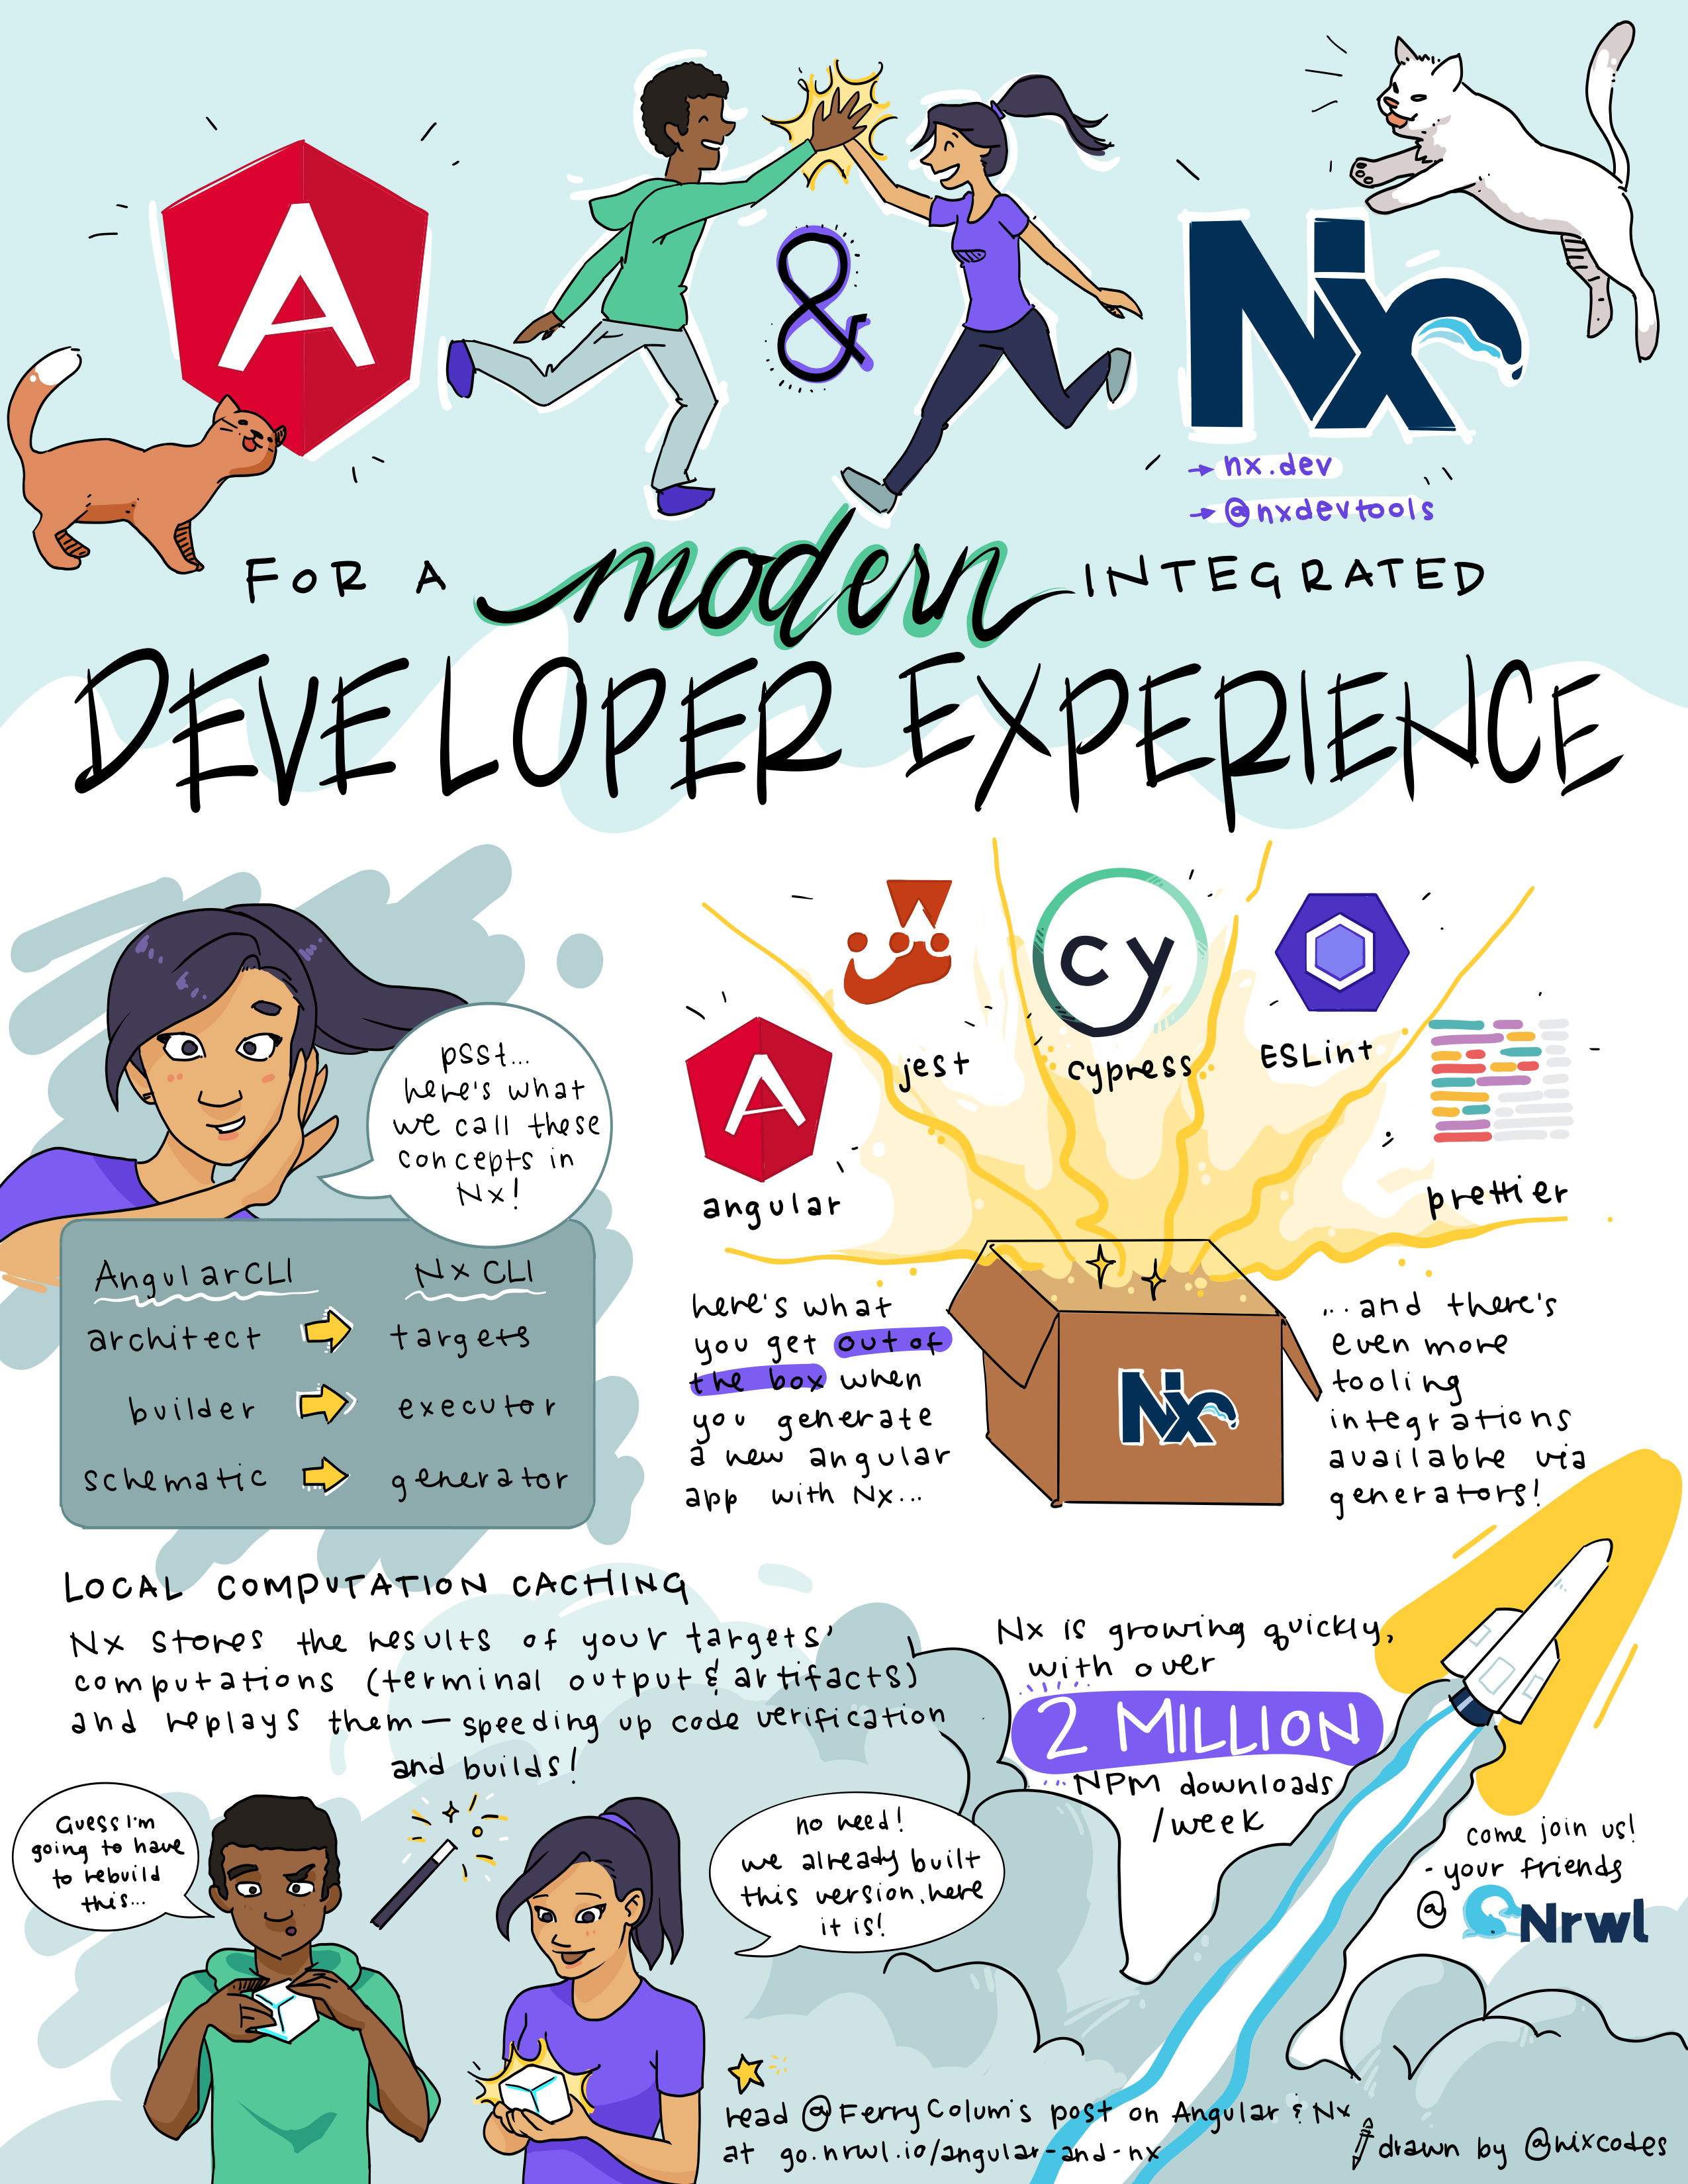 A
&
Nx
→ nx.dev
→ @nxdevtools
FOR A modern INTEGRATED
DEVELOPER EXPERIENCE
psst...
here's what
we call these
concepts in
Nx!
AngularCLI Nx CLI
architect targets
builder executor
schematic generator
A
angular
jest
cy
cypress
ESLint
prettier
here's what
you get out of
the box when
you generate
a new angular
app with Nx...
Nx
...and there's
even more
tooling
integrations
available via
generators!
LOCAL COMPUTATION CACHING
Nx stores the results of your targets'
computations (terminal output & artifacts)
and replays them — speeding up code verification
and builds!
Guess I'm
going to have
to rebuild
this...
no need!
we already built
this version, here
it is!
Nx is growing quickly,
with over
2 MILLION
NPM downloads
/week
come join us!
- your friends
@ Nrwl
read @FerryColum's post on Angular & Nx
at go.nrwl.io/angular-and-nx
drawn by @nixcodes